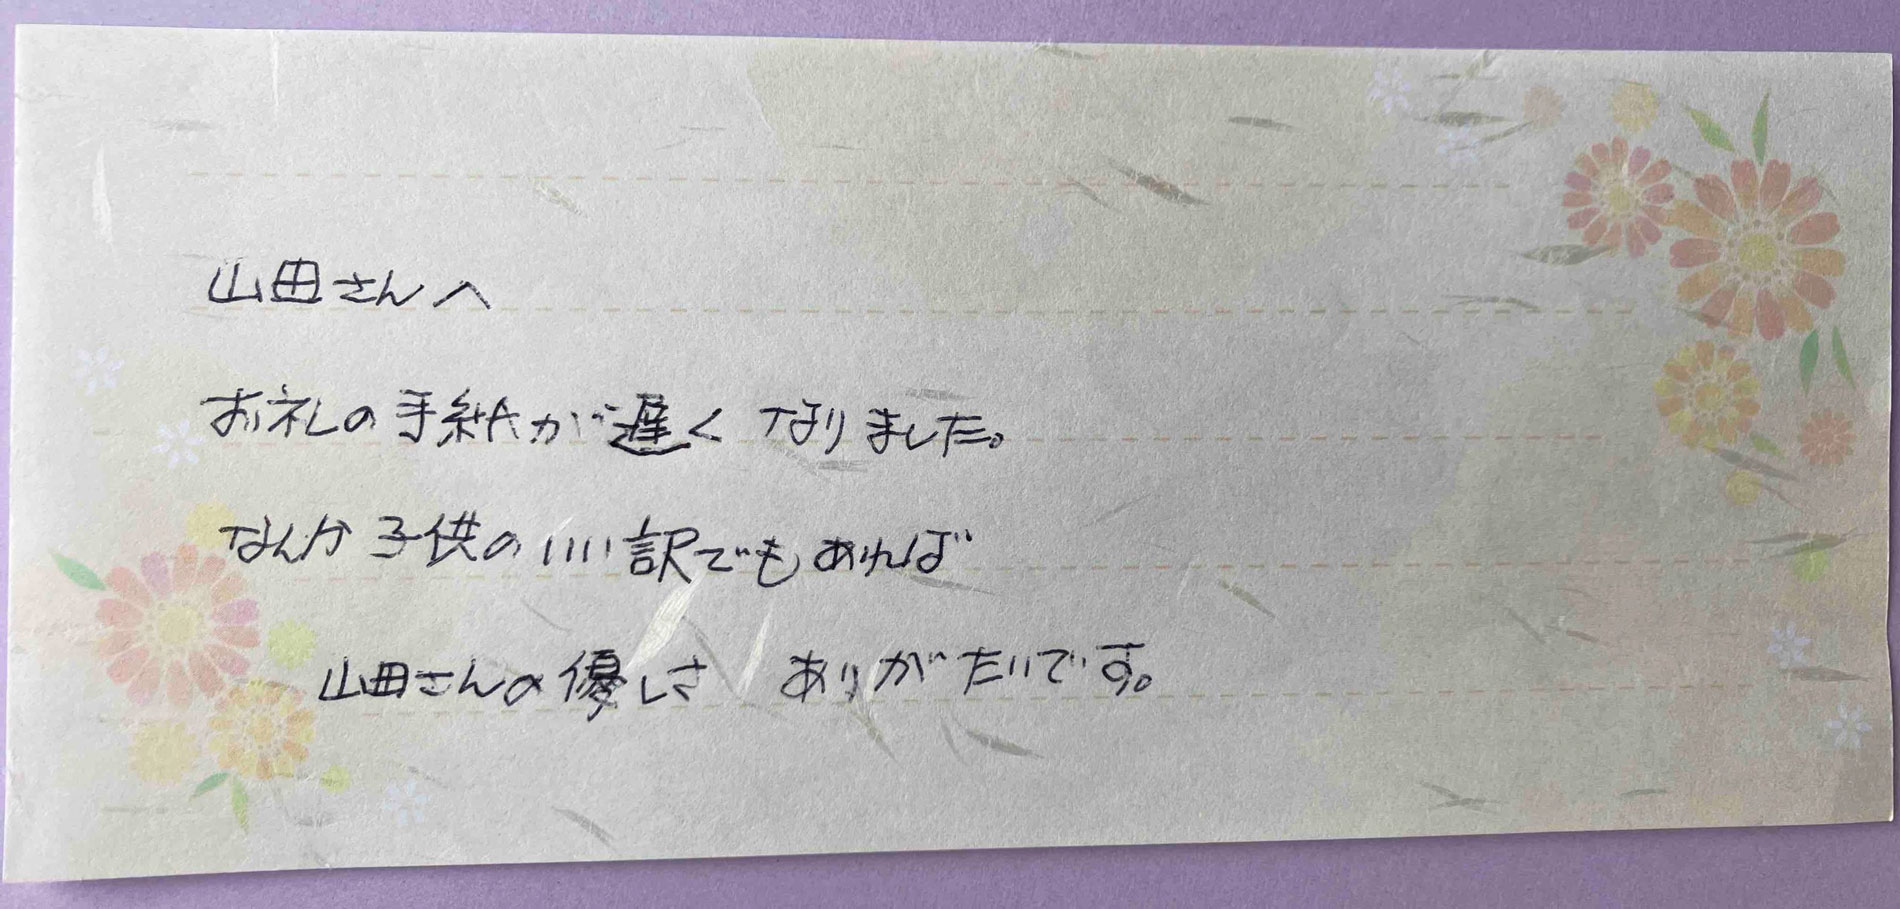 山田さんへ
お礼の手紙が遅くなりました。
なんか子供のいい訳でもあれば
山田さんの優しさ ありがたいです。